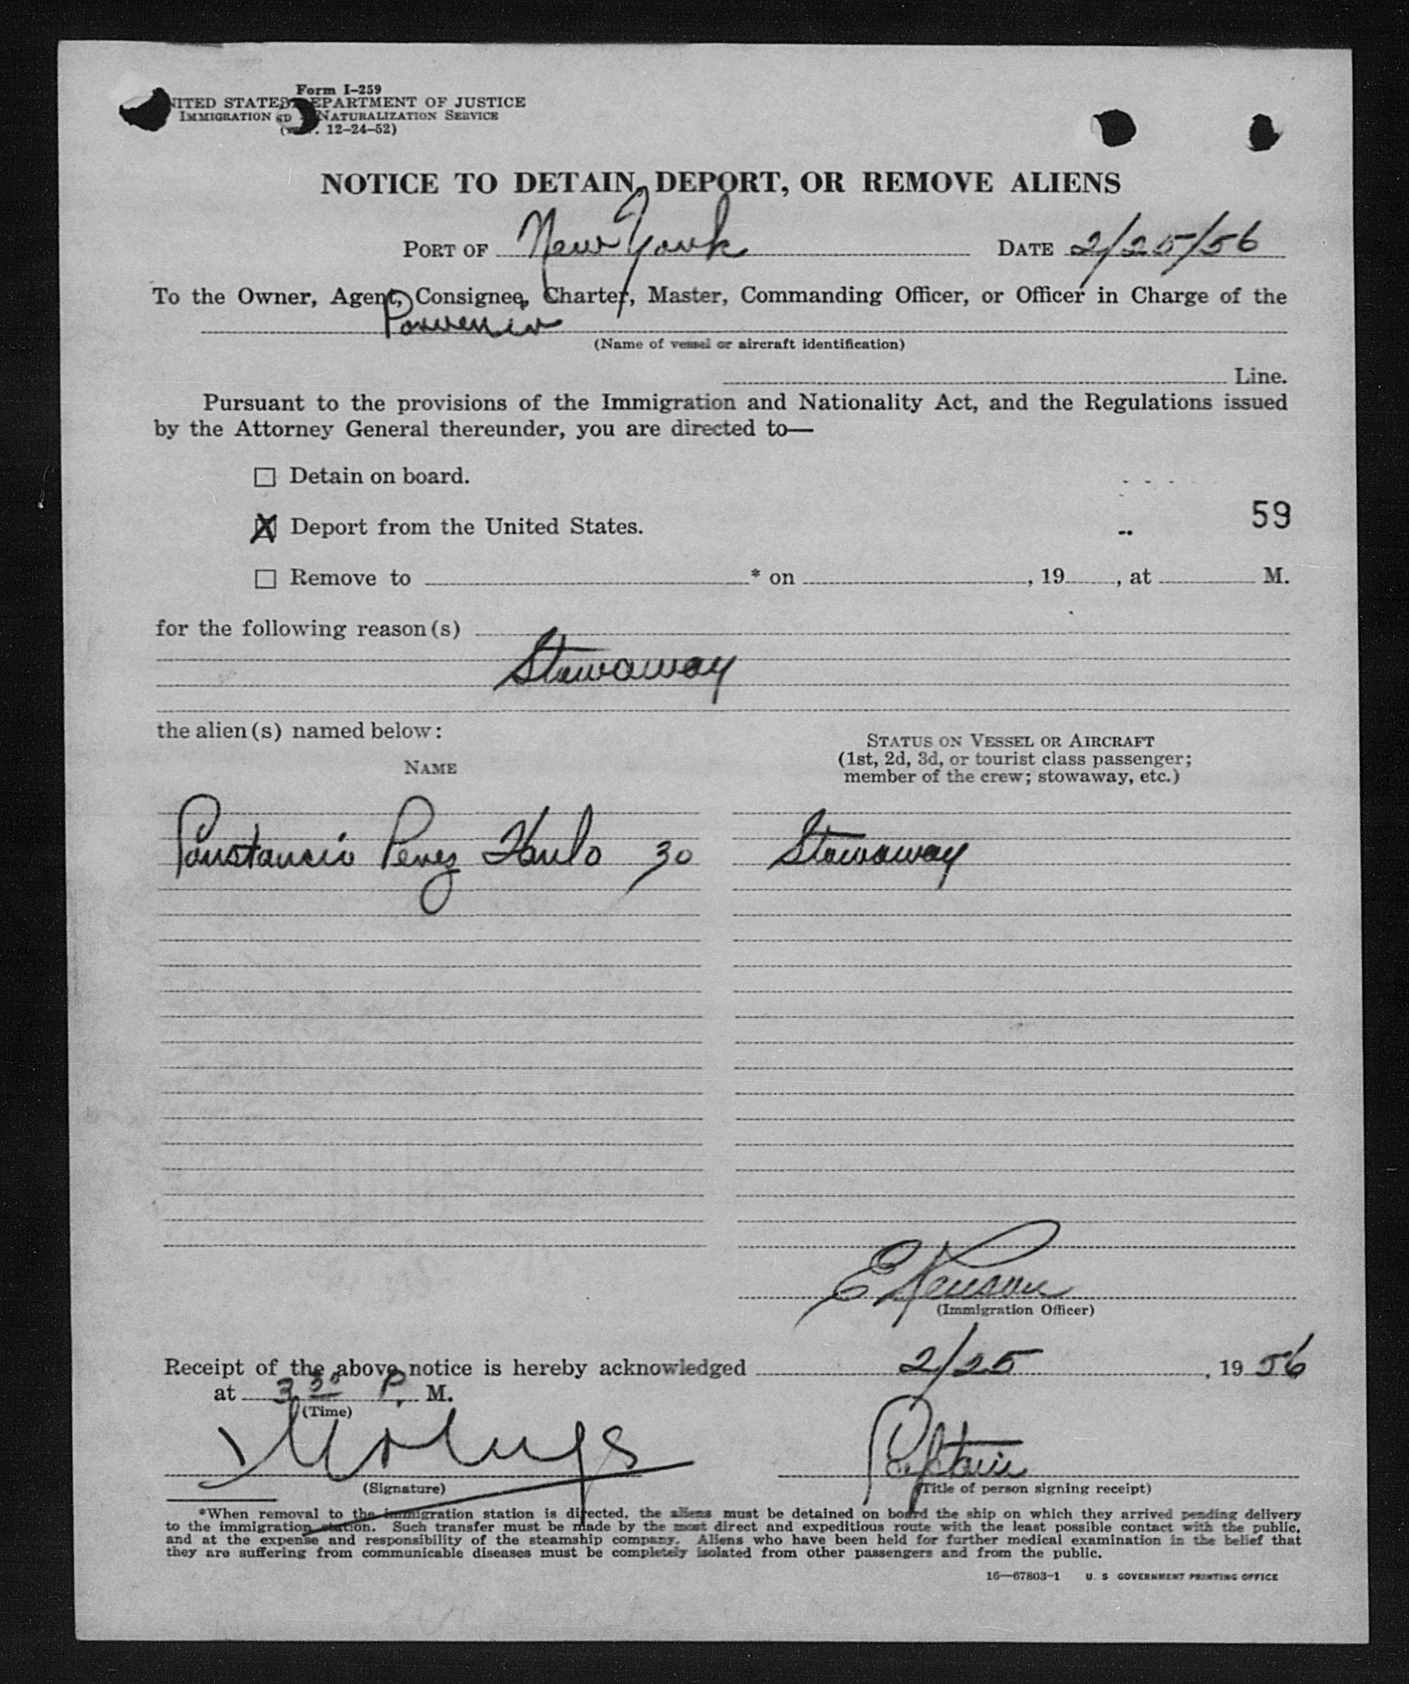 Form I-259
UNITED STATES DEPARTMENT OF JUSTICE
IMMIGRATION AND NATURALIZATION SERVICE
(REV. 12-24-52)
NOTICE TO DETAIN, DEPORT, OR REMOVE ALIENS
PORT OF New York DATE 2/25/56
To the Owner, Agent, Consignee, Charter, Master, Commanding Officer, or Officer in Charge of the
(Name of vessel or aircraft identification)
Line.
Pursuant to the provisions of the Immigration and Nationality Act, and the Regulations issued
by the Attorney General thereunder, you are directed to—
☐ Detain on board.
☒ Deport from the United States. 59
☐ Remove to * on , 19 , at M.
for the following reason(s)
Stowaway
the alien(s) named below:
NAME
STATUS ON VESSEL OR AIRCRAFT
(1st, 2d, 3d, or tourist class passenger;
member of the crew; stowaway, etc.)
Constancio Perez 30 Stowaway
E
(Immigration Officer)
Receipt of the above notice is hereby acknowledged 2/25, 1956
at 3 30 P. M.
(Time)
Captain
(Signature) (Title of person signing receipt)
*When removal to the immigration station is directed, the aliens must be detained on board the ship on which they arrived pending delivery
to the immigration station. Such transfer must be made by the most direct and expeditious route with the least possible contact with the public,
and at the expense and responsibility of the steamship company. Aliens who have been held for further medical examination in the belief that
they are suffering from communicable diseases must be completely isolated from other passengers and from the public.
16—67803-1 U. S GOVERNMENT PRINTING OFFICE